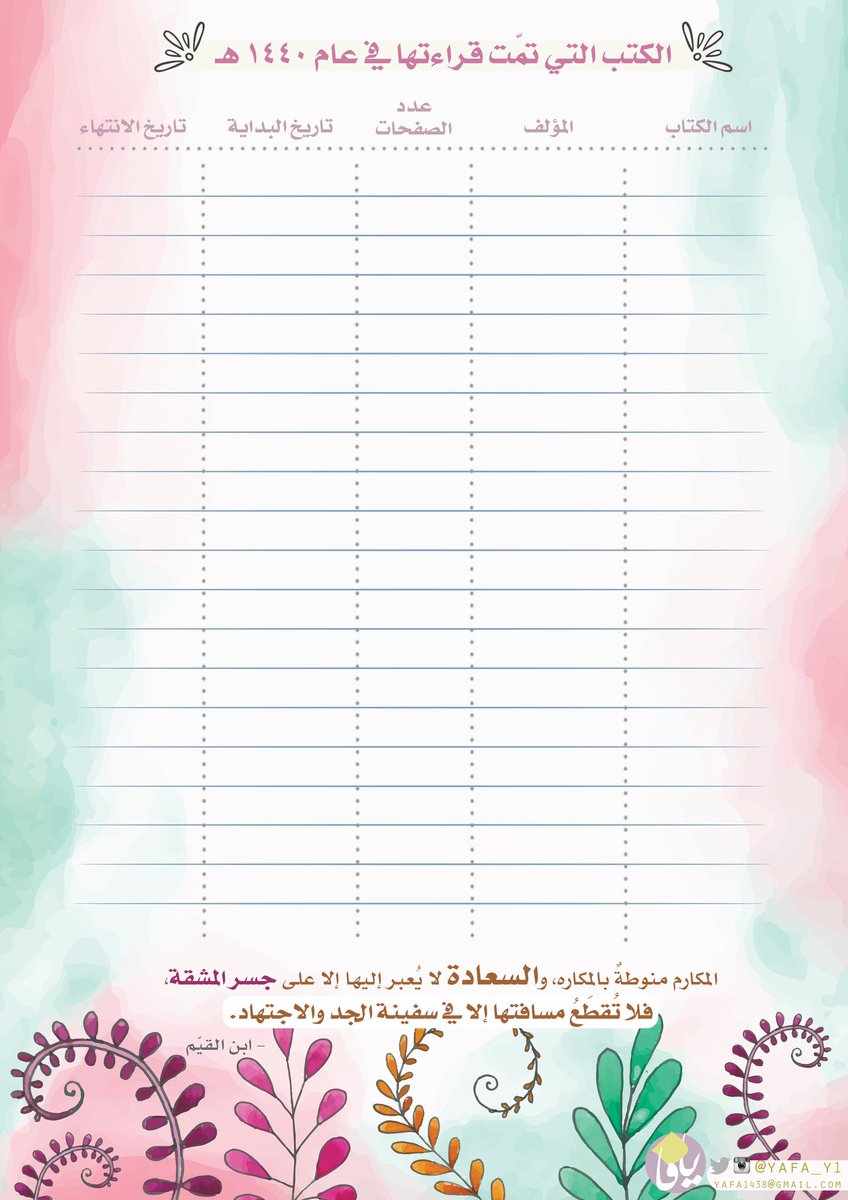 الكتب التي تمّت قراءتها في عام ١٤٤٠ هـ
اسم الكتاب
المؤلف
عدد
الصفحات
تاريخ البداية
تاريخ الانتهاء
المكارم منوطةٌ بالمكاره، والسعادة لا يُعبر إليها إلا على جسر المشقة،
فلا تُقطَعُ مسافتها إلا في سفينة الجد والاجتهاد.
- ابن القيّم
يافا
@YAFA_Y1
YAFA1438@GMAIL.COM